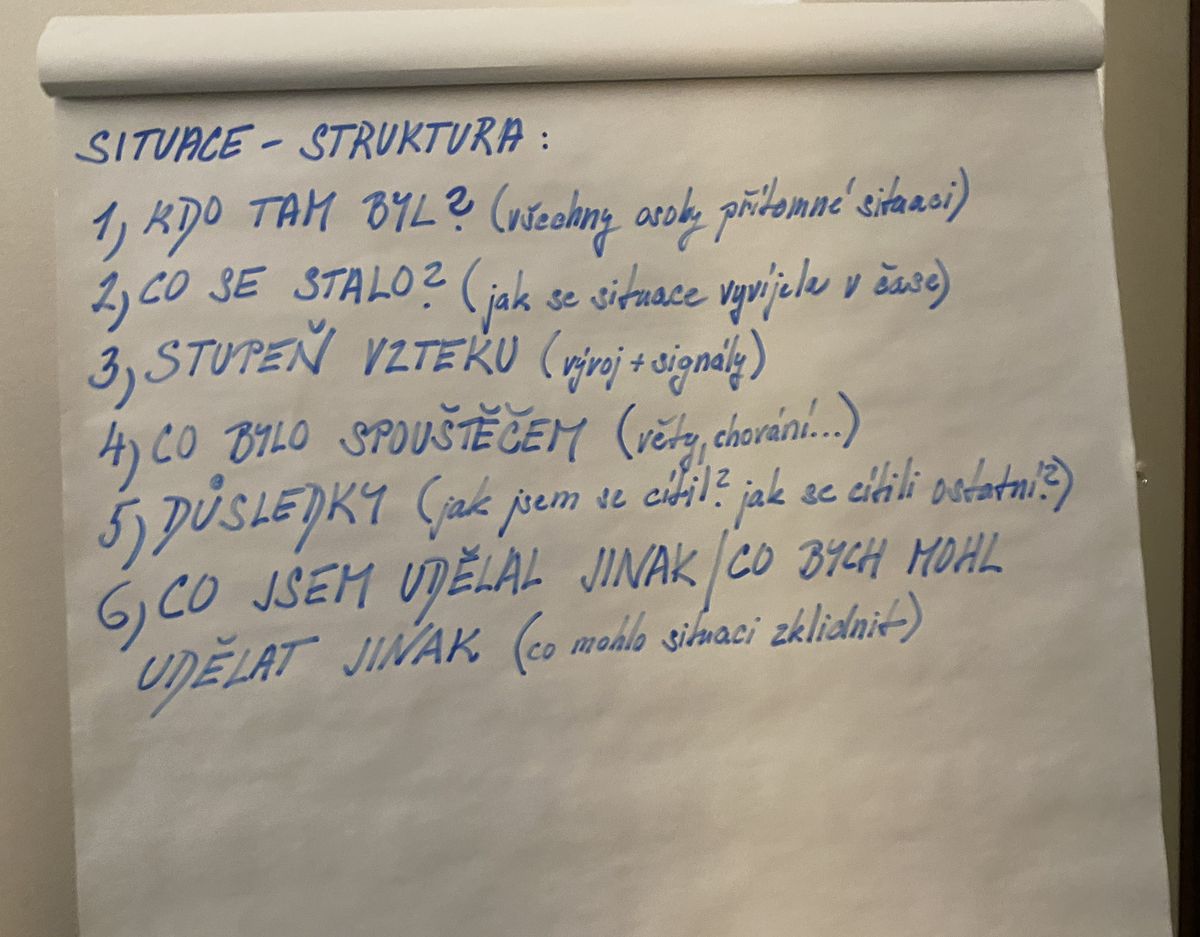 SITUACE - STRUKTURA :
1, KDO TAM BYL? (všechny osoby přítomné situaci)
2, CO SE STALO? (jak se situace vyvíjela v čase)
3, STUPEŇ VZTEKU (vývoj + signály)
4, CO BYLO SPOUŠTĚČEM (věty, chování...)
5, DŮSLEDKY (jak jsem se cítil? jak se cítili ostatní?)
6, CO JSEM UDĚLAL JINAK / CO BYCH MOHL
UDĚLAT JINAK (co mohlo situaci zklidnit)